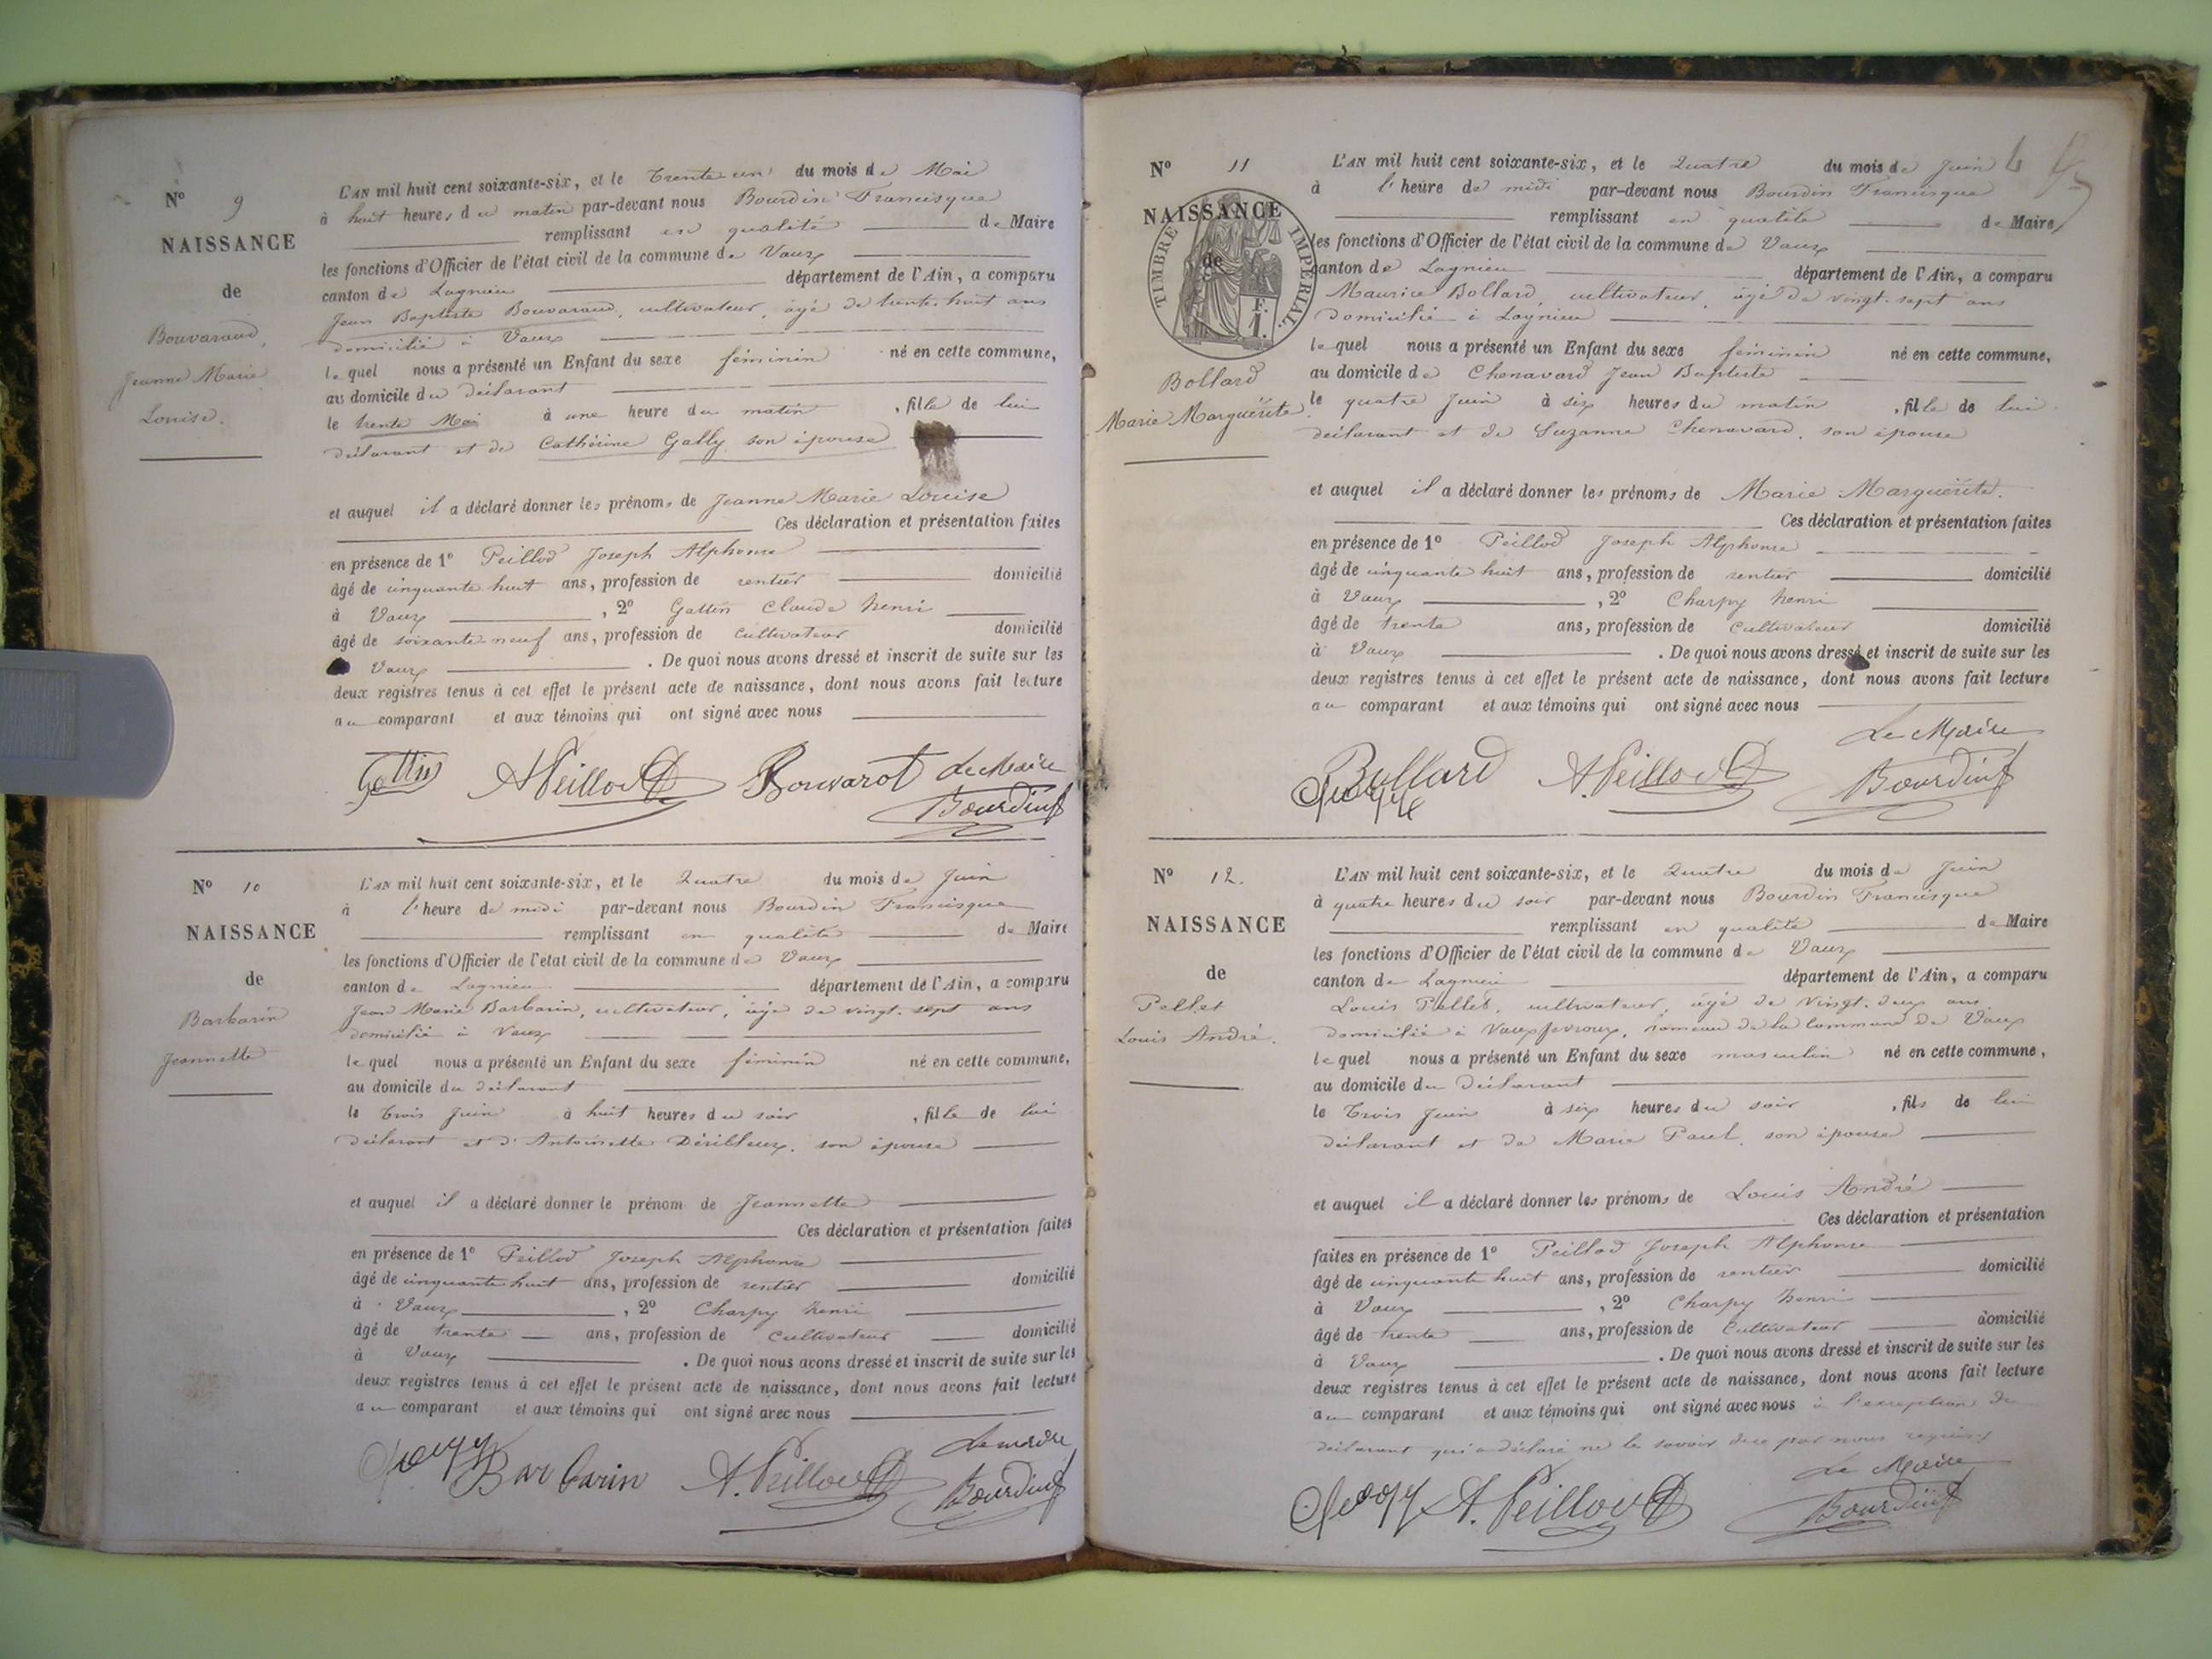 N° 9
NAISSANCE
de
Bouvarand,
Jeanne Marie
Louise.
L'AN mil huit cent soixante-six, et le Trente un du mois de Mai
à huit heures du matin par-devant nous Bourdin Francisque
remplissant en qualité de Maire
les fonctions d'Officier de l'état civil de la commune de Vaux
canton de Lagnieu département de l'Ain, a comparu
Jean Baptiste Bouvarand, cultivateur, âgé de trente-huit ans
domicilié à Vaux
lequel nous a présenté un Enfant du sexe féminin né en cette commune,
au domicile du déclarant
le trente Mai à une heure du matin, fille de lui
déclarant et de Cathérine Gally son épouse
et auquel il a déclaré donner les prénoms de Jeanne Marie Louise
Ces déclaration et présentation faites
en présence de 1° Peillod Joseph Alphonse
âgé de cinquante huit ans, profession de rentier domicilié
à Vaux, 2° Gattin Claude henri
âgé de soixante-neuf ans, profession de Cultivateur domicilié
Vaux. De quoi nous avons dressé et inscrit de suite sur les
deux registres tenus à cet effet le présent acte de naissance, dont nous avons fait lecture
au comparant et aux témoins qui ont signé avec nous
Gattin A Peillod Bouvarot Le Maire
Bourdin f
N° 10
NAISSANCE
de
Barbarin
Jeannette
L'AN mil huit cent soixante-six, et le Quatre du mois de Juin
à l'heure de midi par-devant nous Bourdin Francisque
remplissant en qualité de Maire
les fonctions d'Officier de l'état civil de la commune de Vaux
canton de Lagnieu département de l'Ain, a comparu
Jean Marie Barbarin, cultivateur, âgé de vingt-sept ans
domicilié à Vaux
lequel nous a présenté un Enfant du sexe féminin né en cette commune,
au domicile du déclarant
le Trois Juin à huit heures du soir, fille de lui
déclarant et d'Antoinette Déribleux, son épouse
et auquel il a déclaré donner le prénom de Jeannette
Ces déclaration et présentation faites
en présence de 1° Peillod Joseph Alphonse
âgé de cinquante huit ans, profession de rentier domicilié
à Vaux, 2° Charpy henri
âgé de trente ans, profession de Cultivateur domicilié
à Vaux. De quoi nous avons dressé et inscrit de suite sur les
deux registres tenus à cet effet le présent acte de naissance, dont nous avons fait lecture
au comparant et aux témoins qui ont signé avec nous
Charpy Barbarin A. Peillod Le maire
Bourdin f
N° 11
NAISSANCE
de
TIMBRE IMPERIAL
F.
1.
Bollard
Marie Marguérite.
L'AN mil huit cent soixante-six, et le Quatre du mois de Juin
à l'heure de midi par-devant nous Bourdin Francisque
remplissant en qualité de Maire
les fonctions d'Officier de l'état civil de la commune de Vaux
canton de Lagnieu département de l'Ain, a comparu
Maurice Bollard, cultivateur, âgé de vingt-sept ans
domicilié à Lagnieu
lequel nous a présenté un Enfant du sexe féminin né en cette commune,
au domicile de Chenavard Jean Baptiste
le quatre Juin à six heures du matin, fille de lui
déclarant et de Suzanne Chenavard, son épouse
et auquel il a déclaré donner les prénoms de Marie Marguérite.
Ces déclaration et présentation faites
en présence de 1° Peillod Joseph Alphonse
âgé de cinquante huit ans, profession de rentier domicilié
à Vaux, 2° Charpy henri
âgé de trente ans, profession de Cultivateur domicilié
à Vaux. De quoi nous avons dressé et inscrit de suite sur les
deux registres tenus à cet effet le présent acte de naissance, dont nous avons fait lecture
au comparant et aux témoins qui ont signé avec nous
Le Maire
Bollard A. Peillod Bourdin f
Charpy
N° 12.
NAISSANCE
de
Pellet
Louis André.
L'AN mil huit cent soixante-six, et le Quatre du mois de Juin
à quatre heures du soir par-devant nous Bourdin Francisque
remplissant en qualité de Maire
les fonctions d'Officier de l'état civil de la commune de Vaux
canton de Lagnieu département de l'Ain, a comparu
Louis Pellet, cultivateur, âgé de vingt-deux ans
domicilié à Vaux fevroux, hameau de la Commune de Vaux
lequel nous a présenté un Enfant du sexe masculin né en cette commune,
au domicile du déclarant
le Trois Juin à six heures du soir, fils de lui
déclarant et de Marie Paul, son épouse
et auquel il a déclaré donner les prénoms de Louis André
Ces déclaration et présentation
faites en présence de 1° Peillod Joseph Alphonse
âgé de cinquante huit ans, profession de rentier domicilié
à Vaux, 2° Charpy henri
âgé de trente ans, profession de Cultivateur domicilié
à Vaux. De quoi nous avons dressé et inscrit de suite sur les
deux registres tenus à cet effet le présent acte de naissance, dont nous avons fait lecture
au comparant et aux témoins qui ont signé avec nous à l'exception du
déclarant qui a déclaré ne le savoir par nous requis
Le Maire
Charpy A. Peillod Bourdin f